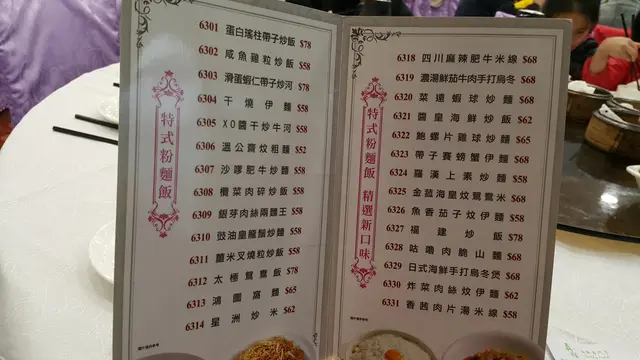 特式粉麵飯
6301 蛋白瑤柱帶子炒飯 $78
6302 咸魚雞粒炒飯 $58
6303 滑蛋蝦仁帶子炒河 $78
6304 干燒伊麵 $58
6305 XO醬干炒牛河 $58
6306 溫公齋炆粗麵 $52
6307 沙嗲肥牛炒麵 $58
6308 欖菜肉碎炒飯 $58
6309 銀芽肉絲兩麵王 $58
6310 豉油皇龍鬚炒麵 $58
6311 薑米叉燒粒炒飯 $58
6312 太極鴛鴦飯 $78
6313 鴻圖窩麵 $65
6314 星洲炒米 $62
特式粉麵飯 精選新口味
6318 四川麻辣肥牛米線 $68
6319 濃湯鮮茄牛肉手打烏冬 $68
6320 菜遠蝦球炒麵 $68
6321 醬皇海鮮炒麵 $62
6322 鮑螺片雞球炒麵 $65
6323 帶子賽螃蟹伊麵 $68
6324 羅漢上素炒麵 $58
6325 金菇海皇炆鴛鴦米 $68
6326 魚香茄子炆伊麵 $58
6327 福建炒飯 $78
6328 咕嚕肉脆山麵 $68
6329 日式海鮮手打烏冬煲 $68
6330 炸菜肉絲炆伊麵 $62
6331 香茜肉片湯米線 $58